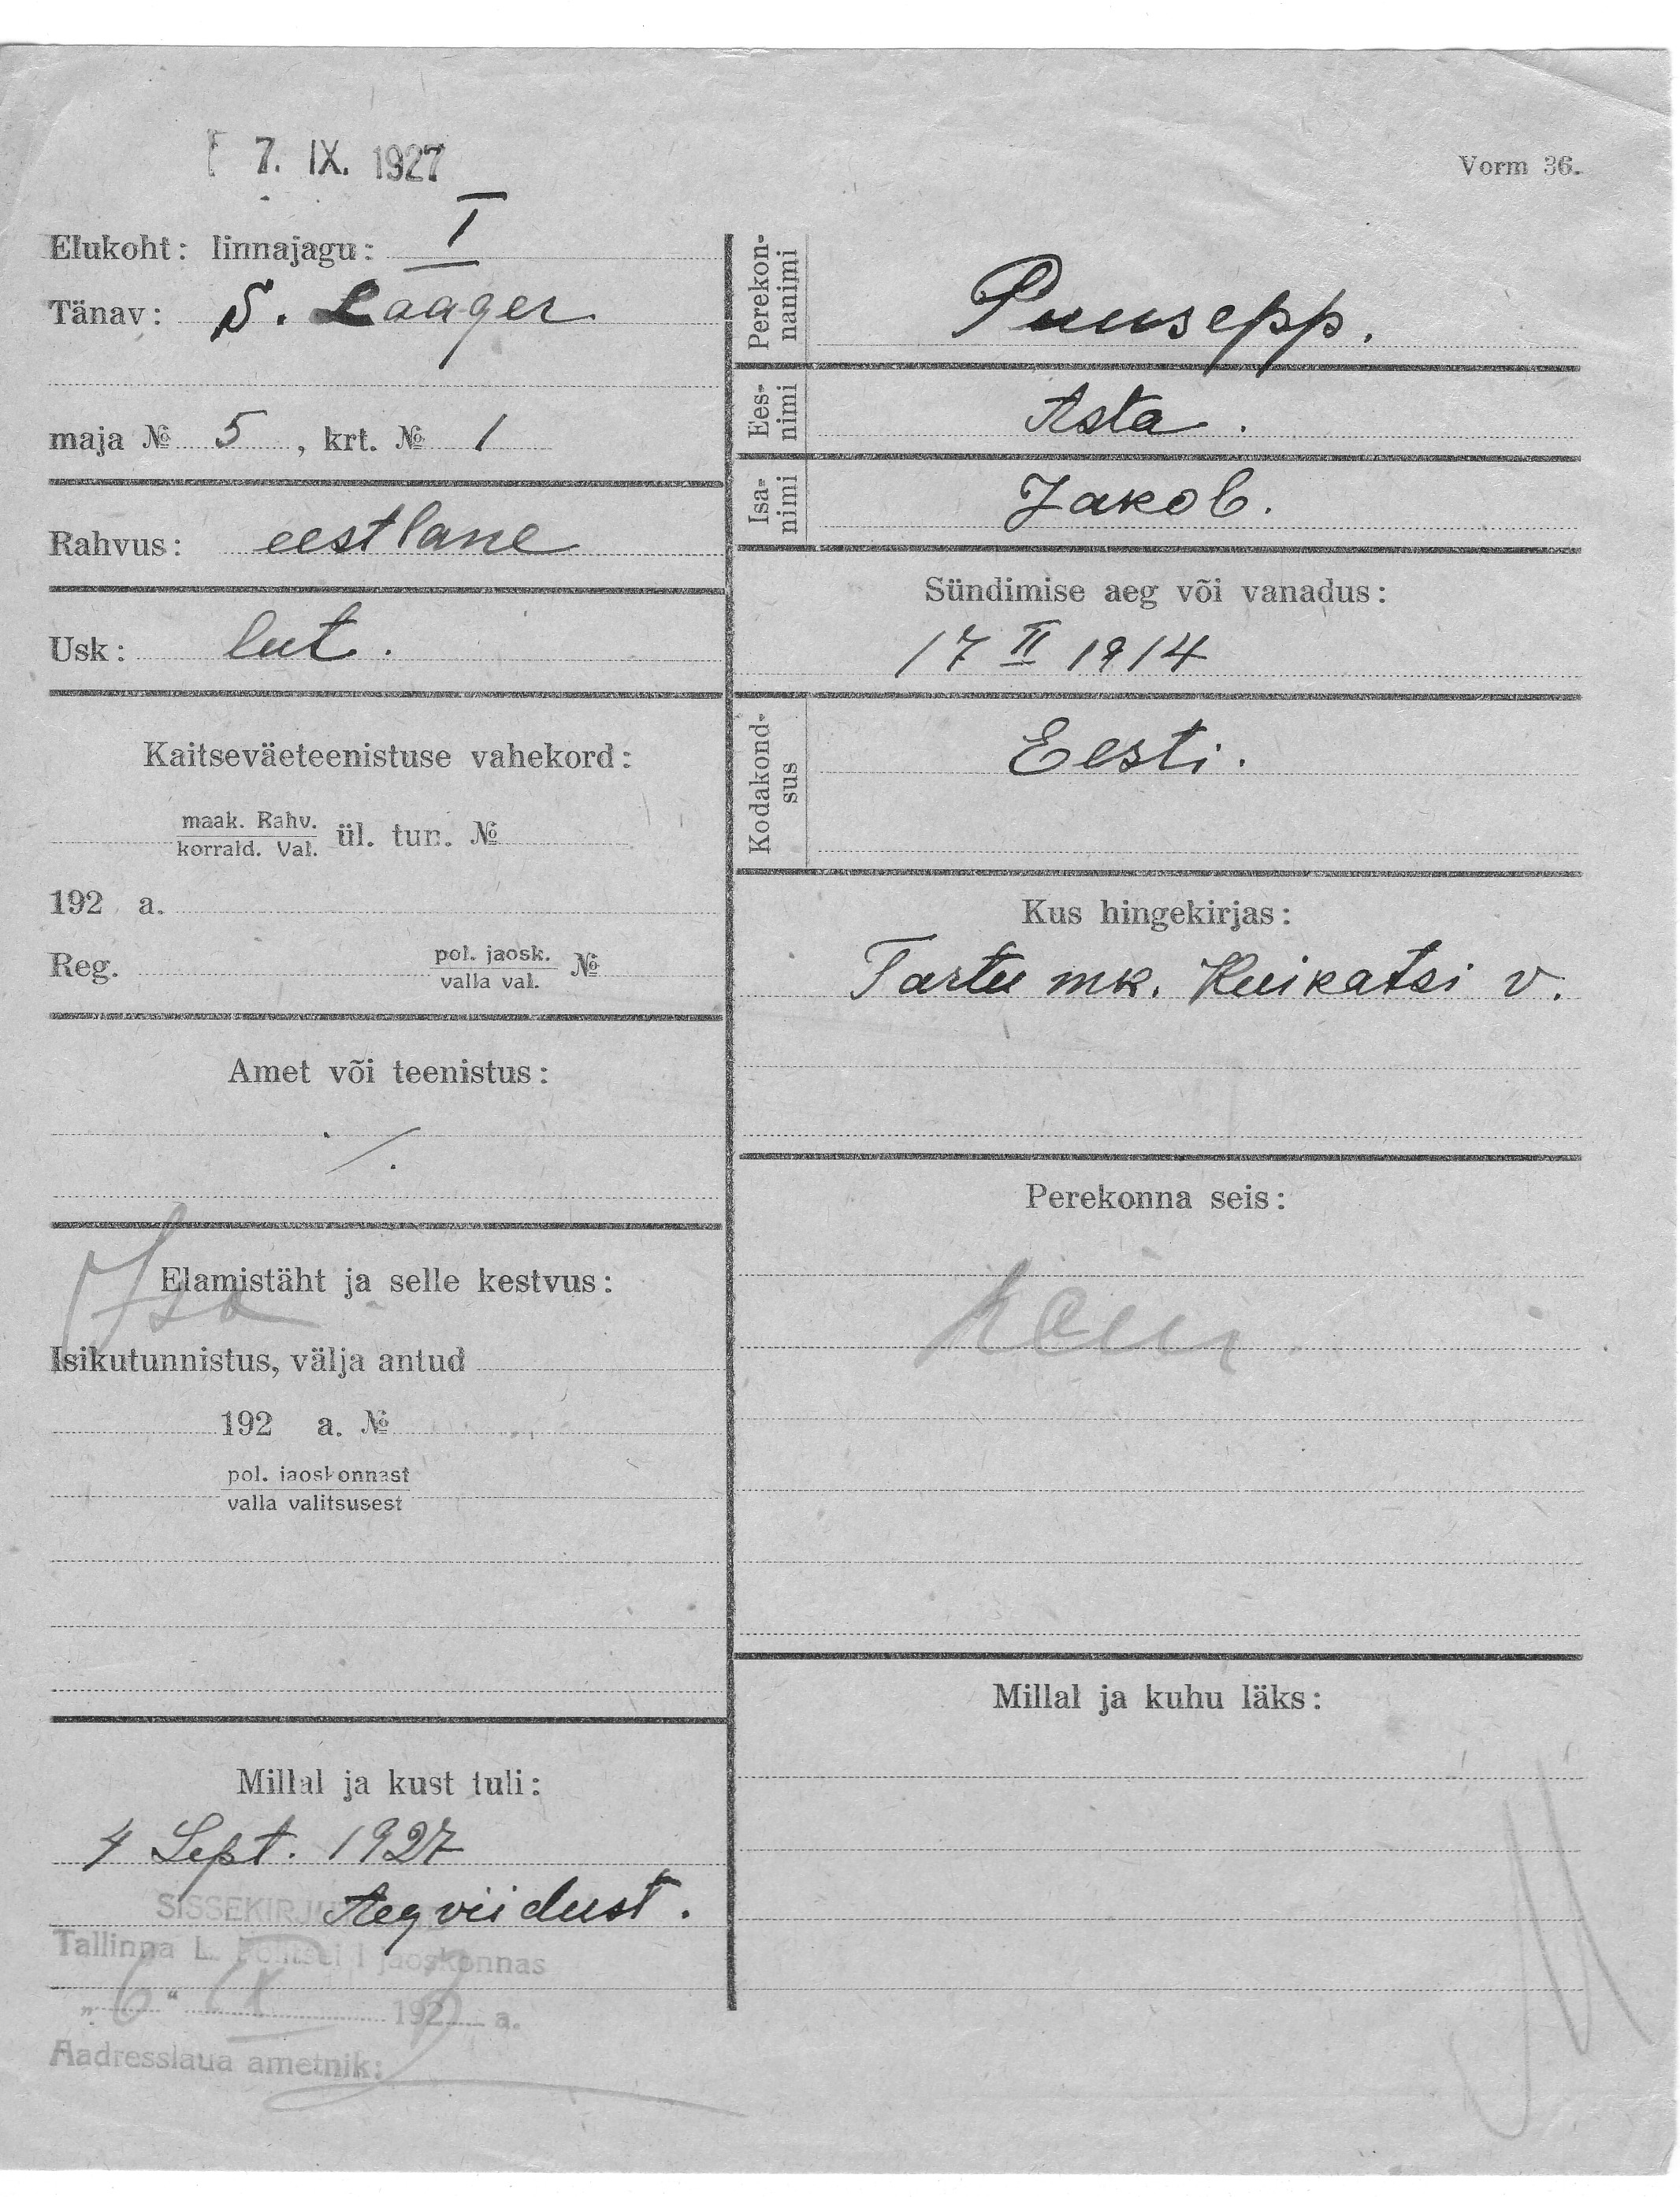 7. IX. 1927
Vorm 36.
Elukoht: linnajagu: I
Tänav: S. Laager
maja № 5, krt. № 1
Rahvus: eestlane
Usk: lut.
Kaitseväeteenistuse vahekord:
maak. Rahv.
korrald. Val.
ül. tun. №
192 a.
Reg. pol. jaosk. №
valla val.
Amet või teenistus:
Elamistäht ja selle kestvus:
Isikutunnistus, välja antud
192 a. №
pol. jaoskonnast
valla valitsusest
Millal ja kust tuli:
4 Sept. 1927
Aegviidust.
SISSEKIRJU
Tallinna L. Politsei I jaoskonnas
"6" IX 1927 a.
Aadresslaua ametnik:
Perekonnanimi
Puusepp.
Eesnimi
Asta.
Isanimi
Jakob.
Sündimise aeg või vanadus:
17 II 1914
Kodakondsus
Eesti.
Kus hingekirjas:
Tartu mk. Kuikatsi v.
Perekonna seis:
Millal ja kuhu läks: